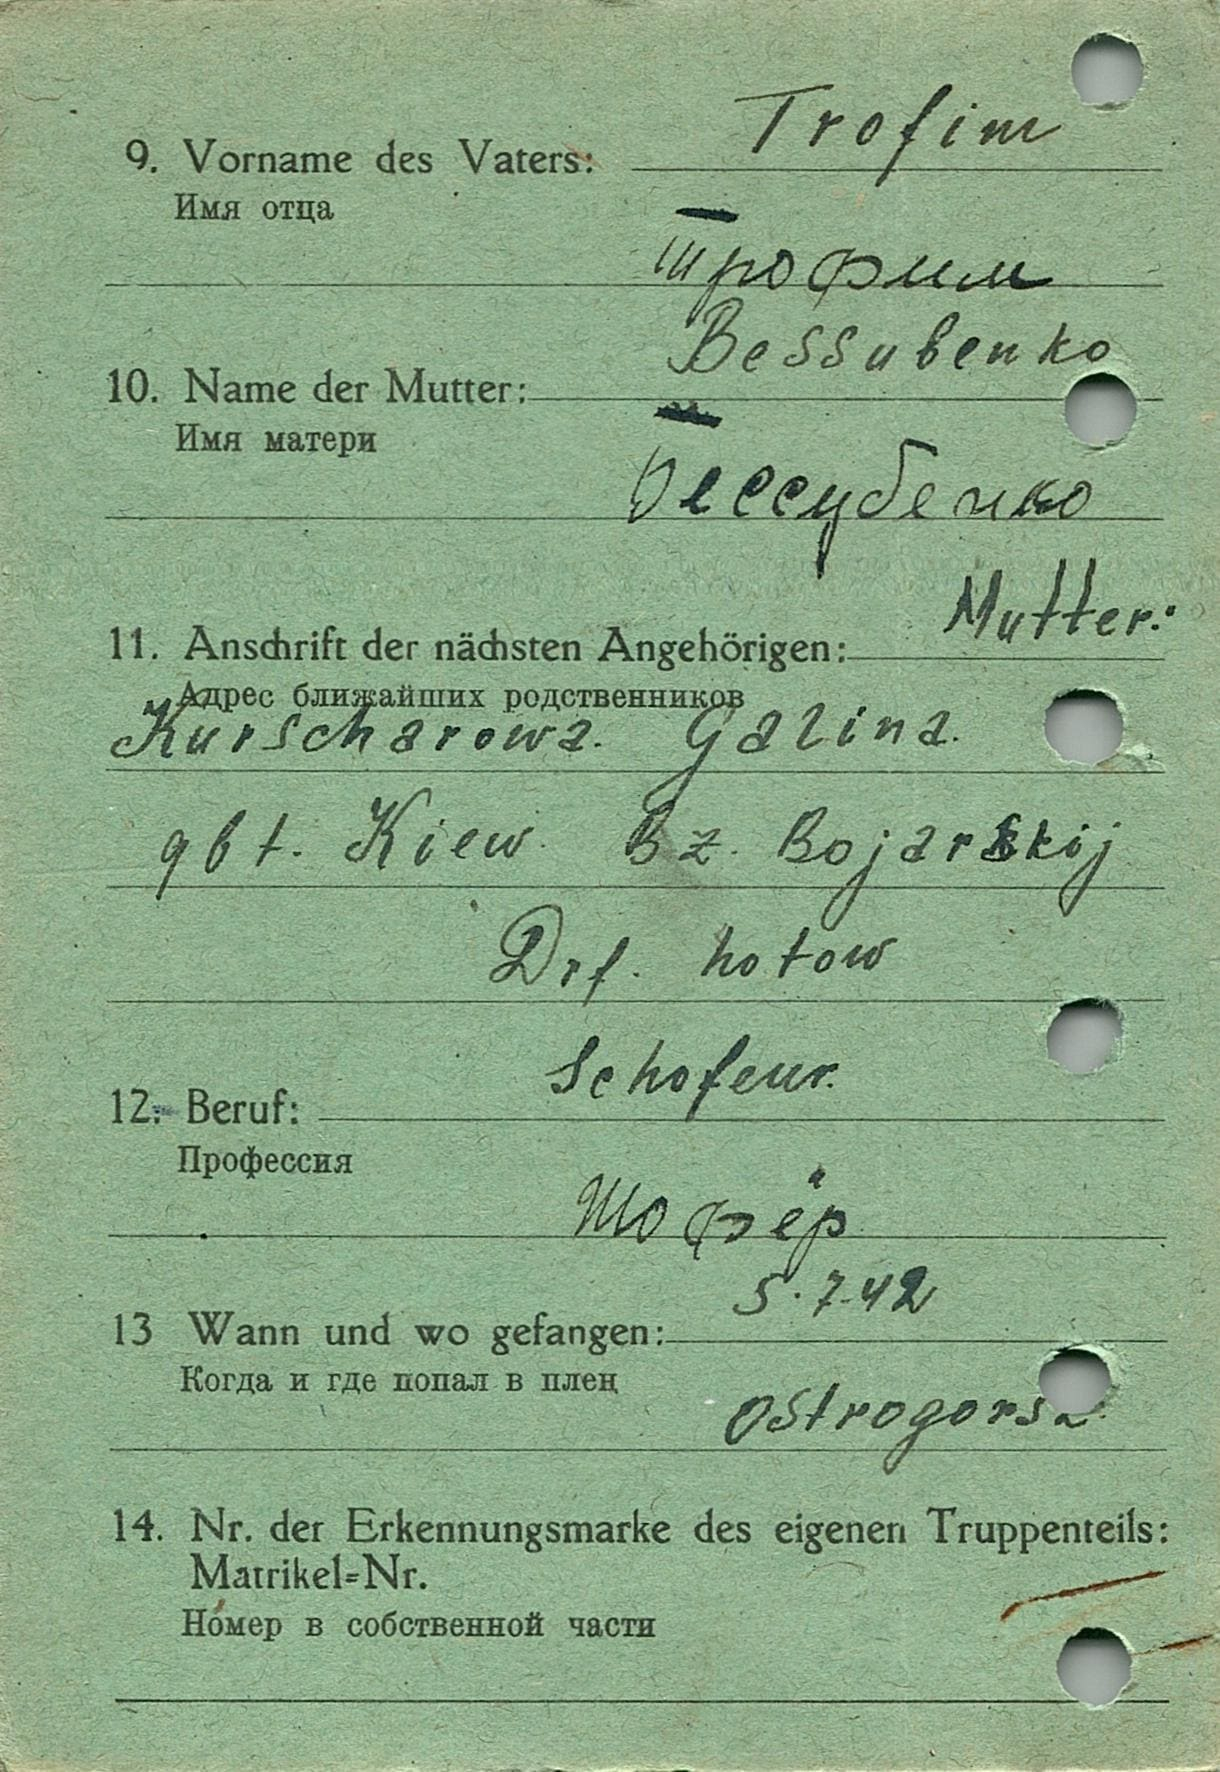 Trofim
9. Vorname des Vaters:
Имя отца
Трофим
Bessubenko
10. Name der Mutter:
Имя матери
Бессубенко
Mutter:
11. Anschrift der nächsten Angehörigen:
Адрес ближайших родственников
Kurscharowa. Galina.
gbt. Kiew. Bz. Bojarskij
Drf. hotow
Schofeur.
12. Beruf:
Профессия
Шофёр
5.7.42
13 Wann und wo gefangen:
Когда и где попал в плен
14. Nr. der Erkennungsmarke des eigenen Truppenteils:
Matrikel=Nr.
Номер в собственной части